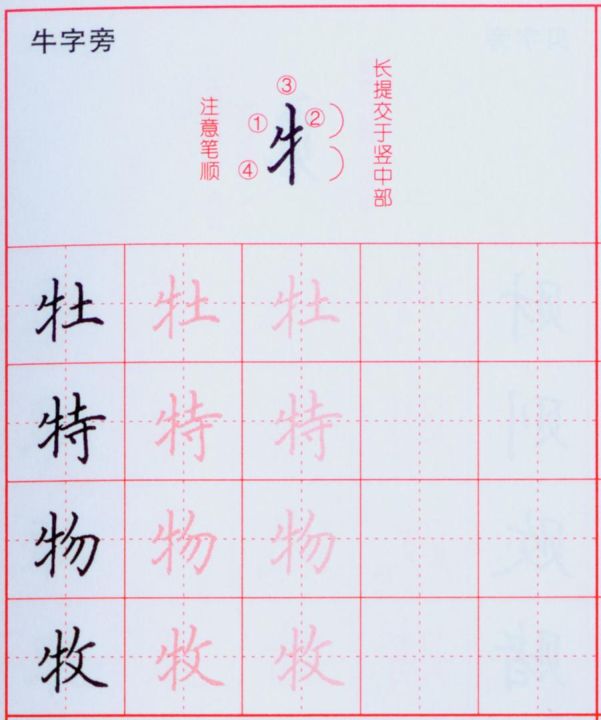 牛字旁
注意笔顺
① ② ③ ④
牜
长提交于竖中部
牡 牡 牡
特 特 特
物 物 物
牧 牧 牧